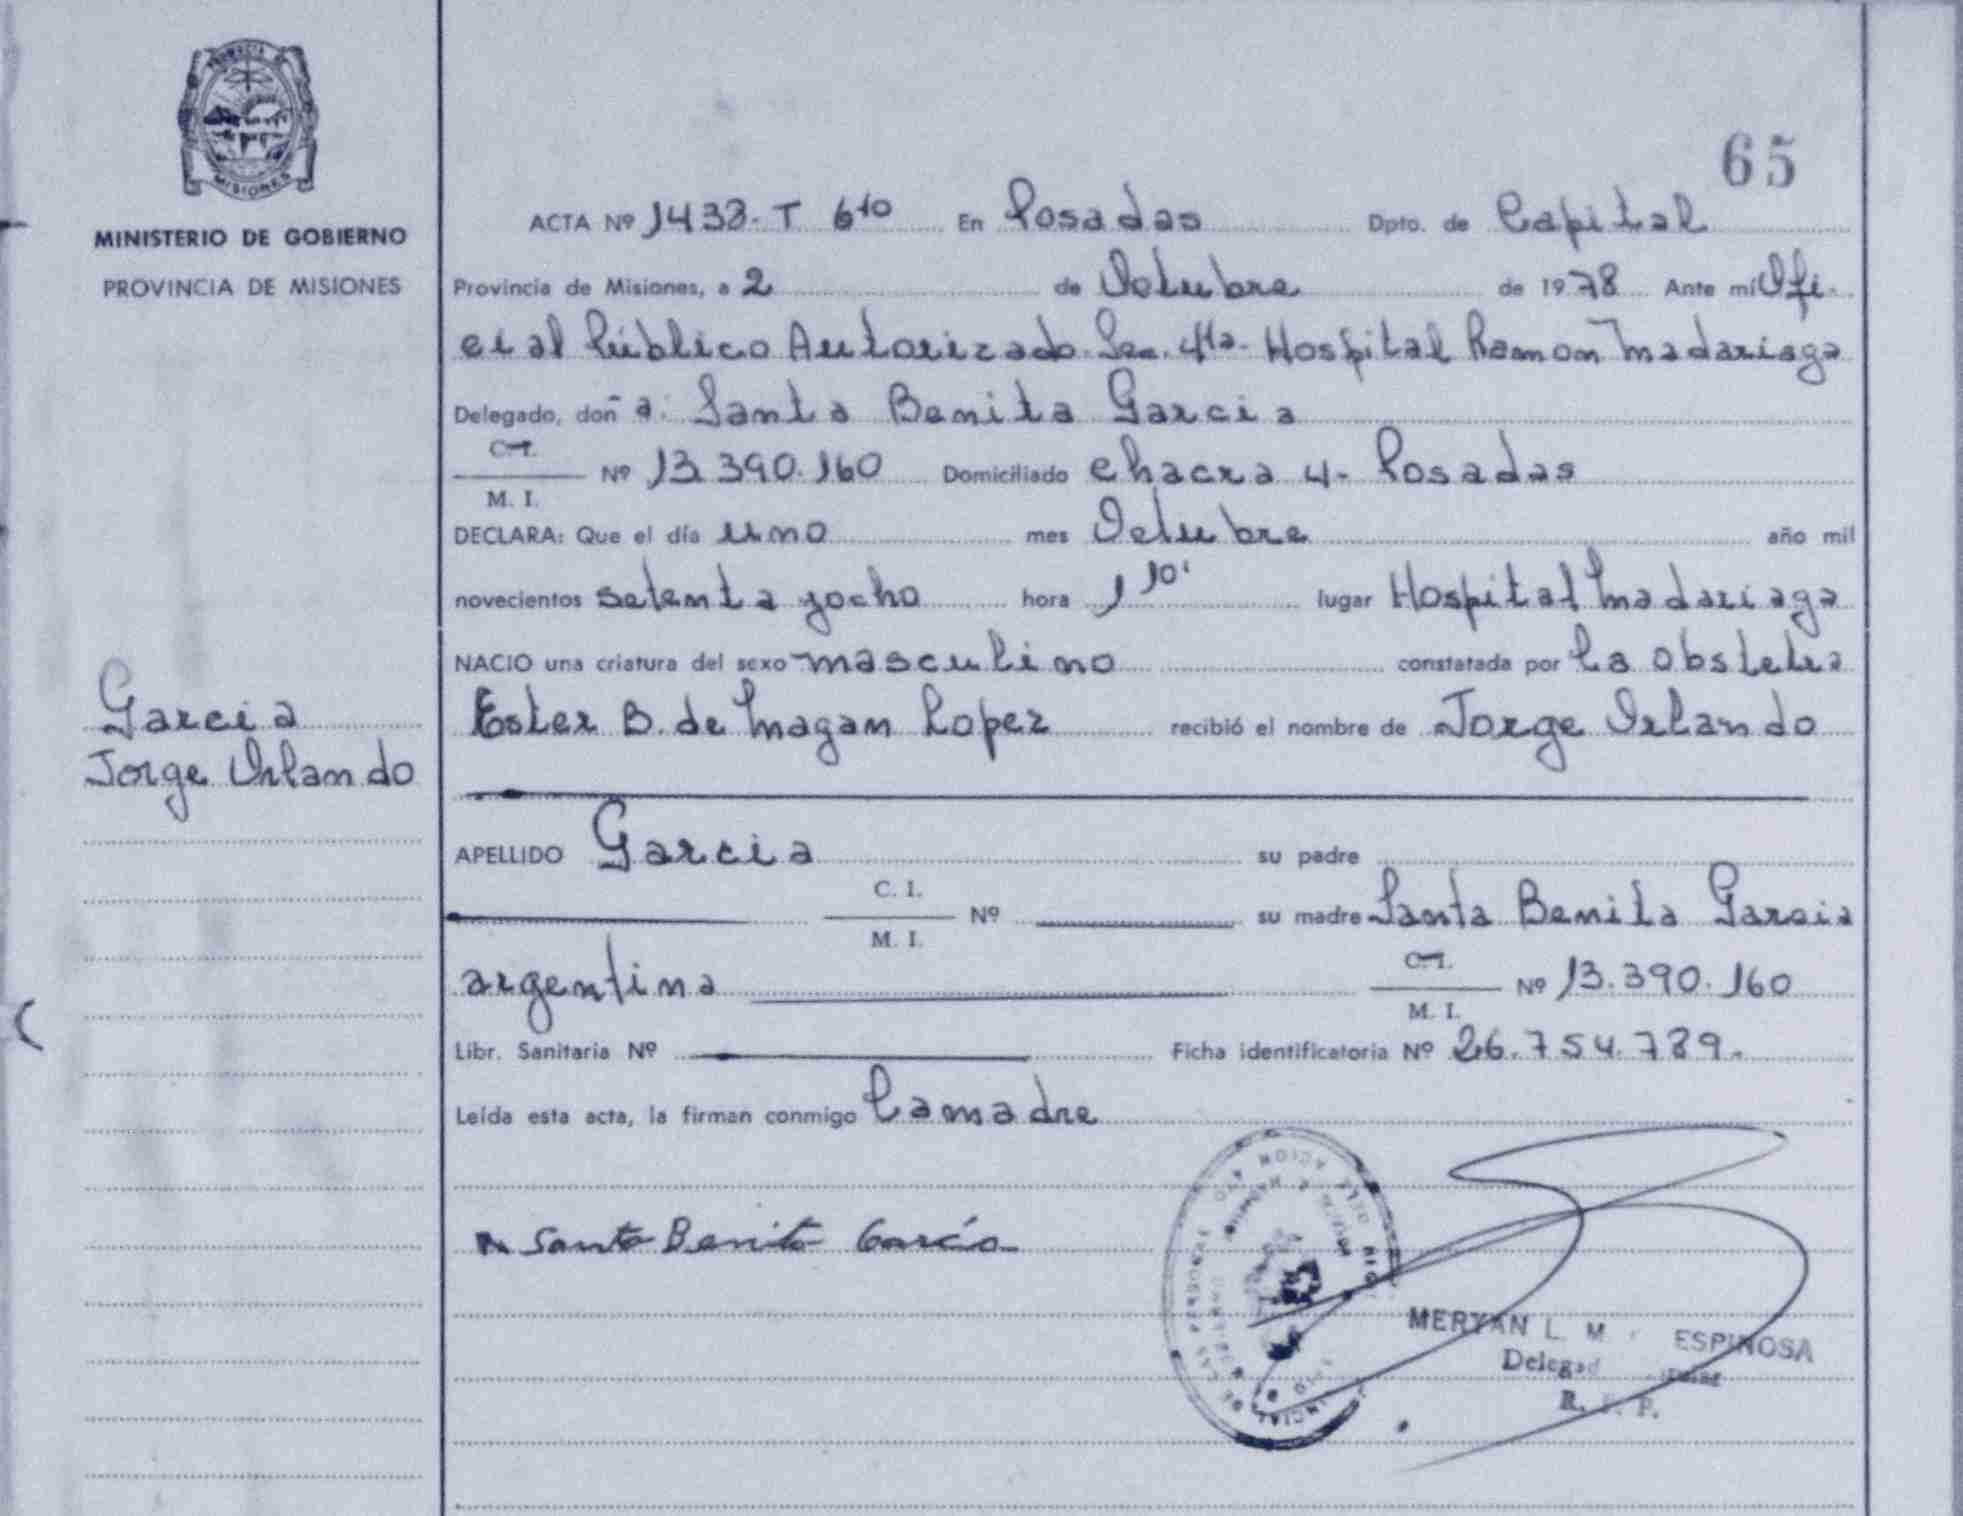 PROVINCIA DE
MISIONES
MINISTERIO DE GOBIERNO
PROVINCIA DE MISIONES
65
ACTA Nº 1433-T 6to En Posadas Dpto. de Capital
Provincia de Misiones, a 2 de Octubre de 1978 Ante mí Ofi-
cial Público Autorizado Sec. 4ta. Hospital Ramon Madariaga
Delegado, doña: Santa Benita Garcia
C. I.
M. I. Nº 13.390.160 Domiciliado chacra 4- Posadas
DECLARA: Que el día uno mes Octubre año mil
novecientos setenta yocho hora 1 10' lugar Hospital Madariaga
NACIO una criatura del sexo masculino constatada por la obstetra
Ester B. de Magan Lopez recibió el nombre de Jorge Orlando
Garcia
Jorge Orlando
APELLIDO Garcia su padre
C. I.
M. I. Nº su madre Santa Benita Garcia
argentina C. I.
M. I. Nº 13.390.160
Libr. Sanitaria Nº Ficha identificatoria Nº 26.754.789.
Leída esta acta, la firman conmigo la madre
Santa Benita García
MERYAN L. M ESPINOSA
R. P.